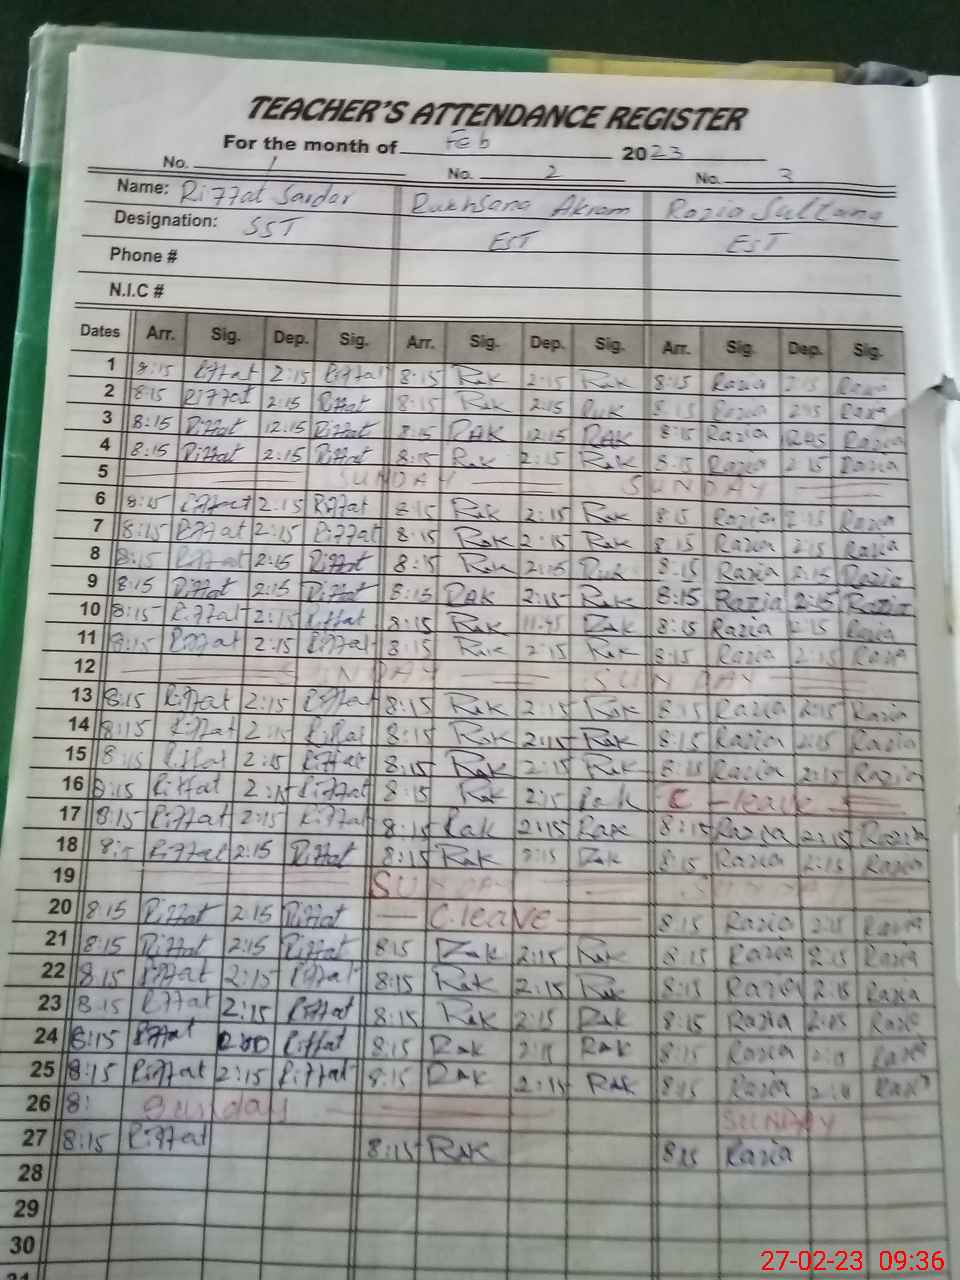 TEACHER'S ATTENDANCE REGISTER
For the month of Feb 2023
No. 1 No. 2 No. 3
Name: Riffat Sardar Rukhsana Akram Razia Sultana
Designation: SST EST EST
Phone #
N.I.C #
Dates Arr. Sig. Dep. Sig. Arr. Sig. Dep. Sig. Arr. Sig. Dep. Sig.
1 8:15 Riffat 2:15 Riffat 8:15 Rak 2:15 Rak 8:15 Razia 2:15 Razia
2 8:15 Riffat 2:15 Riffat 8:15 Rak 2:15 Ruk 8:15 Razia 2:15 Razia
3 8:15 Riffat 12:15 Riffat 8:15 RAK 12:15 RAK 8:15 Razia Razia
4 8:15 Riffat 2:15 Riffat 8:15 Rak 2:15 Rak 8:15 Razia 2:15 Razia
5 SUNDAY SUNDAY
6 8:15 Riffat 2:15 Riffat 8:15 Rak 2:15 Rak 8:15 Razia 2:15 Razia
7 8:15 Riffat 2:15 Riffat 8:15 Rak 2:15 Rak 8:15 Razia 2:15 Razia
8 8:15 Riffat 2:15 Riffat 8:15 Rak 2:15 Ruk 8:15 Razia 2:15 Razia
9 8:15 Riffat 2:15 Riffat 8:15 RAK 2:15 Rak 8:15 Razia 2:15 Razia
10 8:15 Riffat 2:15 Riffat 8:15 Rak 11:45 Rak 8:15 Razia 2:15 Razia
11 8:15 Riffat 2:15 Riffat 8:15 Rak 2:15 Rak 8:15 Razia 2:15 Razia
12 SUNDAY SUNDAY
13 8:15 Riffat 2:15 Riffat 8:15 Rak 2:15 Rak 8:15 Razia 2:15 Razia
14 8:15 Riffat 2:15 Riffat 8:15 Rak 2:15 Rak 8:15 Razia 2:15 Razia
15 8:15 Riffat 2:15 Riffat 8:15 Rak 2:15 Rak 8:15 Razia 2:15 Razia
16 8:15 Riffat 2:15 Riffat 8:15 Rak 2:15 Rak C - leave
17 8:15 Riffat 2:15 Riffat 8:15 Rak 2:15 Rak 8:15 Razia 2:15 Razia
18 8:15 Riffat 2:15 Riffat 8:15 Rak 2:15 Rak 8:15 Razia 2:15 Razia
19 SUNDAY SUNDAY
20 8:15 Riffat 2:15 Riffat C.leave 8:15 Razia 2:15 Razia
21 8:15 Riffat 2:15 Riffat 8:15 Rak 2:15 Rak 8:15 Razia 2:15 Razia
22 8:15 Riffat 2:15 Riffat 8:15 Rak 2:15 Rak 8:15 Razia 2:15 Razia
23 8:15 Riffat 2:15 Riffat 8:15 Rak 2:15 Rak 8:15 Razia 2:15 Razia
24 8:15 Riffat Riffat 8:15 Rak 2:15 RAK 8:15 Razia Razia
25 8:15 Riffat 2:15 Riffat 8:15 RAK 2:15 RAK 8:15 Razia Razia
26 8: Sunday SUNDAY
27 8:15 Riffat 8:15 RAK 8:15 Razia
28
29
30
31
27-02-23 09:36